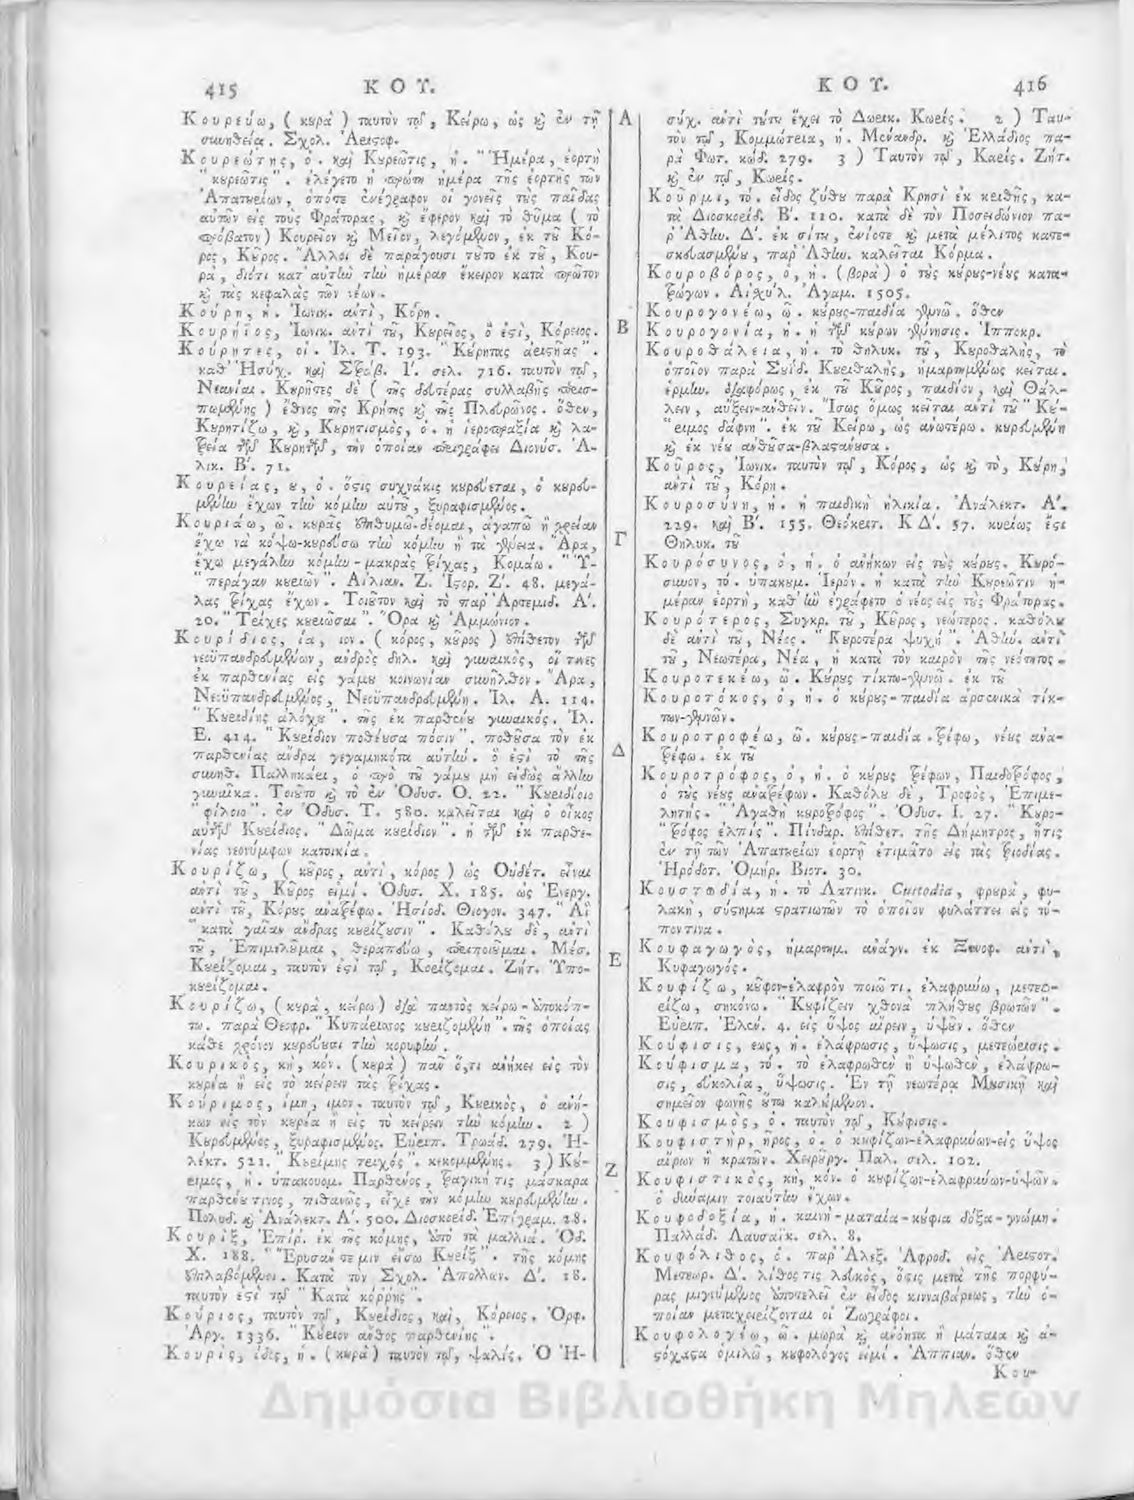 415 ΚΟΥ.
Κουρεύω, ( κυρὰ ) ταυτὸν τῷ, Κείρω, ὡς καὶ ἐν τῇ
συνηθείᾳ. Σχολ. Ἀριστοφ.
Κουρεώτης, ὁ. καὶ Κουρεῶτις, ἡ. "Ἡμέρα, ἑορτὴ
"κουρεῶτις". ἐλέγετο ἡ πρώτη ἡμέρα τῆς ἑορτῆς τῶν
Ἀπατουρίων, ὁπότε ἐνέγραφον οἱ γονεῖς τοὺς παῖδας
αὐτῶν εἰς τοὺς Φράτορας, καὶ ἔφερον καὶ τὸ θῦμα ( τὸ
πρόβατον) Κουρεῖον καὶ Μεῖον, λεγόμενον, ἐκ τοῦ Κό-
ρος, Κοῦρος. Ἄλλοι δὲ παράγουσι τοῦτο ἐκ τοῦ, Κου-
ρὰ, διότι κατ' αὐτὴν τὴν ἡμέραν ἔκειρον κατὰ πρῶτον
καὶ τὰς κεφαλὰς τῶν νέων.
Κούρη, ἡ. Ἰωνικ. ἀντὶ, Κόρη.
Κουρήϊος, Ἰωνικ. ἀντὶ τοῦ, Κουρεῖος, ὅ ἐστὶ, Κόρειος.
Κούρητες, οἱ. Ἰλ. Τ. 193. "Κούρητας ἀριστῆας".
καθ' Ἡσύχ. καὶ Στράβ. Ι'. σελ. 716. ταυτὸν τῷ,
Νεανίαι. Κουρῆτες δὲ ( τῆς δευτέρας συλλαβῆς περισ-
πωμένης ) ἔθνος τῆς Κρήτης καὶ τῆς Πλευρῶνος. ὅθεν,
Κουρητίζω, καὶ, Κουρητισμὸς, ὁ. ἡ ἱεροπραξία καὶ λα-
τρεία τῶν Κουρητῶν, τὴν ὁποίαν περιγράφει Διονύσ. Ἁ-
λικ. Β'. 71.
Κουρείας, ου, ὁ. ὅστις συχνάκις κουρεύεται, ὁ κουρευ-
μένην ἔχων τὴν κόμην αὐτοῦ, ξυραφισμένος.
Κουριάω, ῶ. κουρᾶς ἐπιθυμῶ-δέομαι, ἀγαπῶ ἢ χρείαν
ἔχω νὰ κόψω-κουρεύσω τὴν κόμην ἢ τὰ γένεια. Ἄρα,
ἔχω μεγάλην κόμην-μακρὰς τρίχας, Κομάω. "Ὑ-
"περάγαν κουριῶν". Αἰλιαν. Ζ. Ἱστορ. Ζ'. 48. μεγά-
λας τρίχας ἔχων. Τοιοῦτον καὶ τὸ παρ' Ἀρτεμιδ. Α'.
20. "Τρίχες κουριῶσαι". Ὅρα καὶ Ἀμμώνιον.
Κουρίδιος, ία, ιον. ( κόρος, κοῦρος ) ἐπίθετον τῶν
νεοϋπανδρευμένων, ἀνδρὸς δηλ. καὶ γυναικὸς, οἵ τινες
ἐκ παρθενίας εἰς γάμου κοινωνίαν συνῆλθον. Ἄρα,
Νεοϋπανδρευμένος, Νεοϋπανδρευμένη. Ἰλ. Α. 114.
"Κουριδίης ἀλόχου". τῆς ἐκ παρθένου γυναικός. Ἰλ.
Ε. 414. "Κουρίδιον ποθέουσα πόσιν". ποθοῦσα τὸν ἐκ
παρθενίας ἄνδρα γεγαμηκότα αὐτήν. ὅ ἐστὶ τὸ τῆς
συνηθ. Παλληκάρι, ὁ πρὸ τοῦ γάμου μὴ εἰδὼς ἄλλην
γυναῖκα. Τοιοῦτο καὶ τὸ ἐν Ὀδυσ. Ο. 22. "Κουριδίοιο
"φίλοιο". ἐν Ὀδυσ. Τ. 580. καλεῖται καὶ ὁ οἶκος
αὐτῶν Κουρίδιος. "Δῶμα κουρίδιον". ἡ τῶν ἐκ παρθε-
νίας νεονύμφων κατοικία.
Κουρίζω, ( κοῦρος, ἀντὶ, κόρος ) ὡς Οὐδέτ. εἶναι
ἀντὶ τοῦ, Κοῦρός εἰμι. Ὀδυσ. Χ. 185. ὡς Ἐνεργ.
ἀντὶ τοῦ, Κόρους ἀνατρέφω. Ἡσίοδ. Θεογον. 347. "Αἳ
"κατὰ γαῖαν ἄνδρας κουρίζουσιν". Καθόλου δὲ, ἀντὶ
τοῦ, Ἐπιμελοῦμαι, θεραπεύω, περιποιοῦμαι. Μέσ.
Κουρίζομαι, ταυτόν ἐστι τῷ, Κορίζομαι. Ζήτ. Ὑπο-
κουρίζομαι.
Κουρίζω, (κουρὰ, κείρω) διὰ παντὸς κείρω-ὑποκόπ-
τω. παρὰ Θεοφρ. "Κυπάρισσος κουριζομένη". τῆς ὁποίας
κάθε χρόνον κουρεύουσι τὴν κορυφήν.
Κουρικὸς, κὴ, κόν. (κουρὰ) πᾶν ὅ,τι ἀνήκει εἰς τὸν
κουρέα ἢ εἰς τὸ κείρειν τὰς τρίχας.
Κούριμος, ίμη, ιμον. ταυτὸν τῷ, Κουρικὸς, ὁ ἀνή-
κων εἰς τὸν κουρέα ἢ εἰς τὸ κείρειν τὴν κόμην. 2 )
Κουρευμένος, ξυραφισμένος. Εὐριπ. Τρωάδ. 279. Ἠ-
λέκτ. 521. "Κουρίμης τριχός". κεκομμένης. 3 ) Κού-
ριμος, ἡ. ὑπακουομ. Παρθένος, τραγική τις μάσκαρα
παρθένου τινὸς, πιθανῶς, εἶχε τὴν κόμην κουρευμένην.
Πολυδ. καὶ Ἀνάλεκτ. Α'. 500. Διοσκορίδ. Ἐπίγραμ. 28.
Κουρὶξ, Ἐπίρ. ἐκ τῆς κόμης, ἀπὸ τὰ μαλλιά. Ὀδ.
Χ. 188. "Ἔρυσάν τέ μιν εἴσω Κουρίξ". τῆς κόμης
ἐπιλαβόμενοι. Κατὰ τὸν Σχολ. Ἀπολλων. Δ'. 18.
ταυτόν ἐστὶ τῷ "Κατὰ κόρρης".
Κούριος, ταυτὸν τῷ, Κουρίδιος, καὶ, Κόριος. Ὀρφ.
Ἀργ. 1336. "Κούριον ἄνθος παρθενίης".
Κουρὶς, ίδος, ἡ. (κουρὰ) ταυτὸν τῷ, ψαλίς. Ὁ Ἡ-
Α
Β
Γ
Δ
Ε
Ζ
ΚΟΥ. 416
σύχ. ἀντὶ τούτου ἔχει τὸ Δωρικ. Κωρίς. 2 ) Ταυ-
τὸν τῷ, Κομμώτρια, ἡ. Μένανδρ. καὶ Ἑλλάδιος πα-
ρὰ Φωτ. κώδ. 279. 3 ) Ταυτὸν τῷ, Καρίς. Ζήτ.
καὶ ἐν τῷ, Κωρίς.
Κοῦρμι, τό. εἶδος ζύθου παρὰ Κρησὶ ἐκ κριθῆς, κα-
τὰ Διοσκορίδ. Β'. 110. κατὰ δὲ τὸν Ποσειδώνιον πα-
ρ' Ἀθην. Δ'. ἐκ σίτου, ἐνίοτε καὶ μετὰ μέλιτος κατε-
σκευασμένου, παρ' Ἀθην. καλεῖται Κόρμα.
Κουροβόρος, ὁ, ἡ. (βορὰ) ὁ τοὺς κούρους-νέους κατα-
τρώγων. Αἰσχύλ. Ἀγαμ. 1505.
Κουρογονέω, ῶ. κούρους-παιδία γεννῶ. ὅθεν
Κουρογονία, ἡ. ἡ τῶν κούρων γέννησις. Ἱπποκρ.
Κουροθάλεια, ἡ. τὸ θηλυκ. τοῦ, Κουροθαλὴς, τὸ
ὁποῖον παρὰ Σουΐδ. Κουριθαλὴς, ἡμαρτημένως κεῖται.
ἑρμην. διαφόρως, ἐκ τοῦ Κοῦρος, παιδίον, καὶ Θάλ-
λειν, αὔξειν-ἀνθεῖν. Ἴσως ὅμως κεῖται ἀντὶ τοῦ "Κού-
"ριμος δάφνη". ἐκ τοῦ Κείρω, ὡς ἀνωτέρω. κουρευμένη
καὶ ἐκ νέου ἀνθοῦσα-βλαστάνουσα.
Κοῦρος, Ἰωνικ. ταυτὸν τῷ, Κόρος, ὡς καὶ τὸ, Κούρη,
ἀντὶ τοῦ, Κόρη.
Κουροσύνη, ἡ. ἡ παιδικὴ ἡλικία. Ἀνάλεκτ. Α'.
229. καὶ Β'. 155. Θεόκριτ. ΚΔ'. 57. κυρίως ἐστὶ
Θηλυκ. τοῦ
Κουρόσυνος, ὁ, ἡ. ὁ ἀνήκων εἰς τοὺς κούρους. Κουρό-
συνον, τό. ὑπακουμ. Ἱερόν. ἡ κατὰ τὴν Κουρεῶτιν ἡ-
μέραν ἑορτὴ, καθ' ἣν ἐγράφετο ὁ νέος εἰς τοὺς Φράτορας.
Κουρότερος, Συγκρ. τοῦ, Κοῦρος, νεώτερος. καθόλου
δὲ ἀντὶ τοῦ, Νέος. "Κουροτέρα ψυχή". Ἀθην. ἀντὶ
τοῦ, Νεωτέρα, Νέα, ἡ κατὰ τὸν καιρὸν τῆς νεότητος.
Κουροτεκέω, ῶ. Κούρους τίκτω-γεννῶ. ἐκ τοῦ
Κουροτόκος, ὁ, ἡ. ὁ κούρους-παιδία ἀρσενικὰ τίκ-
των-γεννῶν.
Κουροτροφέω, ῶ. κούρους-παιδία τρέφω, νέους ἀνα-
τρέφω. ἐκ τοῦ
Κουροτρόφος, ὁ, ἡ. ὁ κούρους τρέφων, Παιδοτρόφος,
ὁ τοὺς νέους ἀνατρέφων. Καθόλου δὲ, Τροφὸς, Ἐπιμε-
λητής. "Ἀγαθὴ κουροτρόφος". Ὀδυσ. Ι. 27. "Κουρο-
"τρόφος ἐλπίς". Πίνδαρ. ἐπίθετ. τῆς Δήμητρος, ἥτις
ἐν τῇ τῶν Ἀπατουρίων ἑορτῇ ἐτιμᾶτο εἰς τὰς τριόδους.
Ἡρόδοτ. Ὁμήρ. Βιοτ. 30.
Κουστωδία, ἡ. τὸ Λατινικ. Custodia, φρουρὰ, φυ-
λακὴ, σύστημα στρατιωτῶν τὸ ὁποῖον φυλάττει εἰς τό-
πον τινα.
Κουφαγωγὸς, ἡμαρτημ. ἀνάγν. ἐκ Ξενοφ. ἀντὶ,
Κυφαγωγός.
Κουφίζω, κοῦφον-ἐλαφρὸν ποιῶ τι. ἐλαφρύνω, μετεω-
ρίζω, σηκόνω. "Κουφίζειν χθονὰ πλήθους βροτῶν".
Εὐριπ. Ἑλεν. 4. εἰς ὕψος αἴρειν, ὑψοῦν. ὅθεν
Κούφισις, εως, ἡ. ἐλάφρωσις, ὕψωσις, μετεώρισις.
Κούφισμα, τό. τὸ ἐλαφρωθὲν ἢ ὑψωθὲν, ἐλάφρω-
σις, εὐκολία, ὕψωσις. Ἐν τῇ νεωτέρᾳ Μουσικῇ καὶ
σημεῖον φωνῆς οὕτω καλούμενον.
Κουφισμὸς, ὁ. ταυτὸν τῷ, Κούφισις.
Κουφιστὴρ, ῆρος, ὁ. ὁ κουφίζων-ἐλαφρύνων-εἰς ὕψος
αἴρων ἢ κρατῶν. Χειρουργ. Παλ. σελ. 102.
Κουφιστικὸς, κὴ, κόν. ὁ κουφίζων-ἐλαφρύνων-ὑψῶν.
ὁ δύναμιν τοιαύτην ἔχων.
Κουφοδοξία, ἡ. κενὴ-ματαία-κούφια δόξα-γνώμη.
Παλλάδ. Λαυσαϊκ. σελ. 8.
Κουφόλιθος, ὁ. παρ' Ἀλεξ. Ἀφροδ. εἰς Ἀριστοτ.
Μετεωρ. Δ'. λίθος τις λευκὸς, ὅστις μετὰ τῆς πορφύ-
ρας μιγνύμενος ἀποτελεῖ ἓν εἶδος κινναβάρεως, τὴν ὁ-
ποίαν μεταχειρίζονται οἱ Ζωγράφοι.
Κουφολογέω, ῶ. μωρὰ καὶ ἀνόητα ἢ μάταια καὶ ἀ-
στόχαστα ὁμιλῶ, κουφολόγος εἰμί. Ἀππιαν. ὅθεν
Κου-
Δημόσια Βιβλιοθήκη Μηλεών